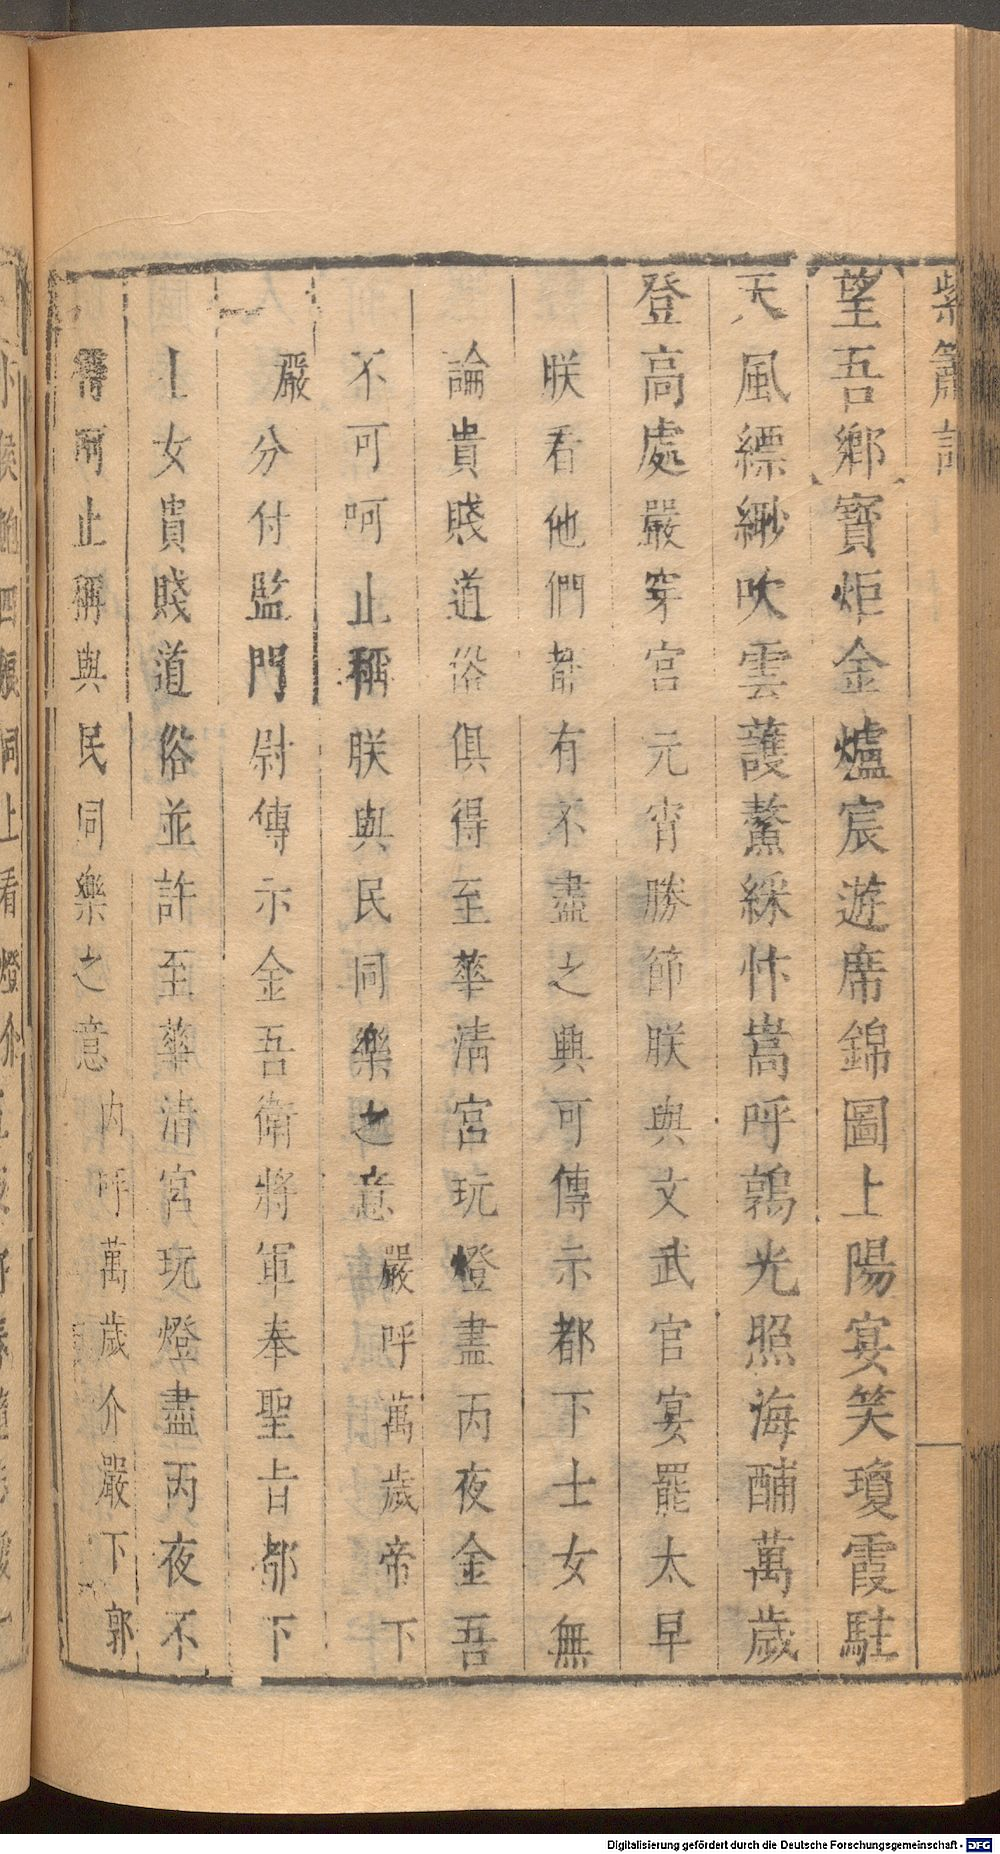 紫簫記
望吾鄉寶炬金爐宸遊席錦圖上陽宴笑瓊霞駐
天風縹緲吹雲護鰲綵忭嵩呼鶉光照海酺萬歲
登高處嚴穿宮元宵勝節朕與文武官宴罷太早
朕看他們都有不盡之興可傳示都下士女無
論貴賤道俗俱得至華清宮玩燈盡丙夜金吾
不可呵止稱朕與民同樂之意嚴呼萬歲帝下
嚴分付監門尉傳示金吾衛將軍奉聖旨都下
士女貴賤道俗並許至華清宮玩燈盡丙夜不
得呵止稱與民同樂之意内呼萬歲介嚴下郭
小侯鮑四娘同上看燈介
Digitalisierung gefördert durch die Deutsche Forschungsgemeinschaft - DFG